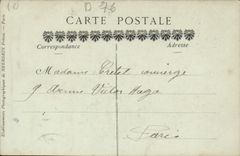 10
D 76
CARTE POSTALE
Correspondance
Adresse
Madame Tretet concierge
9 Avenue Victor Hugo
Paris
Etablissements Photographiques de NEURDEIN Frères. - Paris